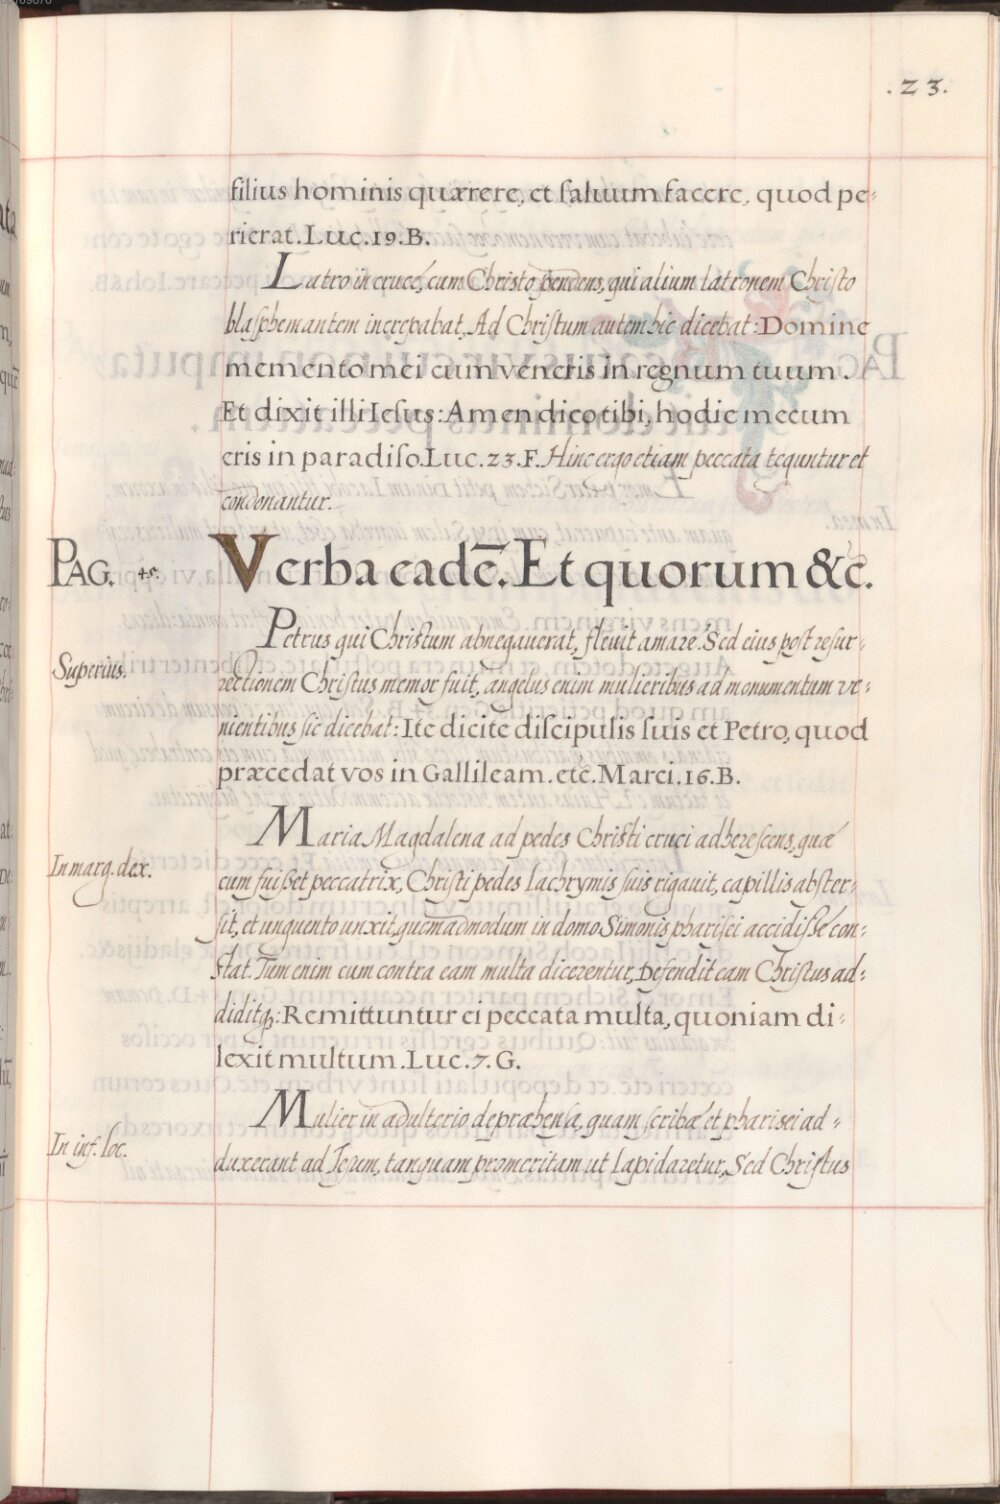 .23.
filius hominis quærere, et saluum facere, quod pe-
rierat. Luc. 19. B.
Latro in crucé, cum Christo pendens, qui alium latronem Christo
blasphemantem increpabat, Ad Christum autem hic dicebat: Domine
memento mei cum veneris in regnum tuum.
Et dixit illi Iesus: Amen dico tibi, hodie mecum
eris in paradiso. Luc. 23. F. Hinc ergo etiam peccata teguntur et
condonantur.
PAG. 45. Verba eadē. Et quorum &c.
Petrus qui Christum abnegauerat, fleuit amare. Sed eius post resur-
Superius.
rectionem Christus memor fuit, angelus enim mulieribus ad monumentum ve-
nientibus sic dicebat: Ite dicite discipulis suis et Petro, quod
præcedat vos in Gallileam. etc. Marci. 16. B.
Maria Magdalena ad pedes Christi cruci adherescens, quæ
In marg. dex.
cum fuisset peccatrix, Christi pedes lachrymis suis rigauit, capillis abster-
sit, et unguento unxit, quemadmodum in domo Simonis pharisei accidisse con-
stat. Tum enim cum contra eam multa dicerentur, Defendit eam Christus ad-
diditq;: Remittuntur ei peccata multa, quoniam di-
lexit multum. Luc. 7. G.
Mulier in adulterio depræhensa, quam scribæ et pharisei ad-
In inf. loc.
duxerant ad Iesum, tanquam promeritam ut lapidaretur, Sed Christus